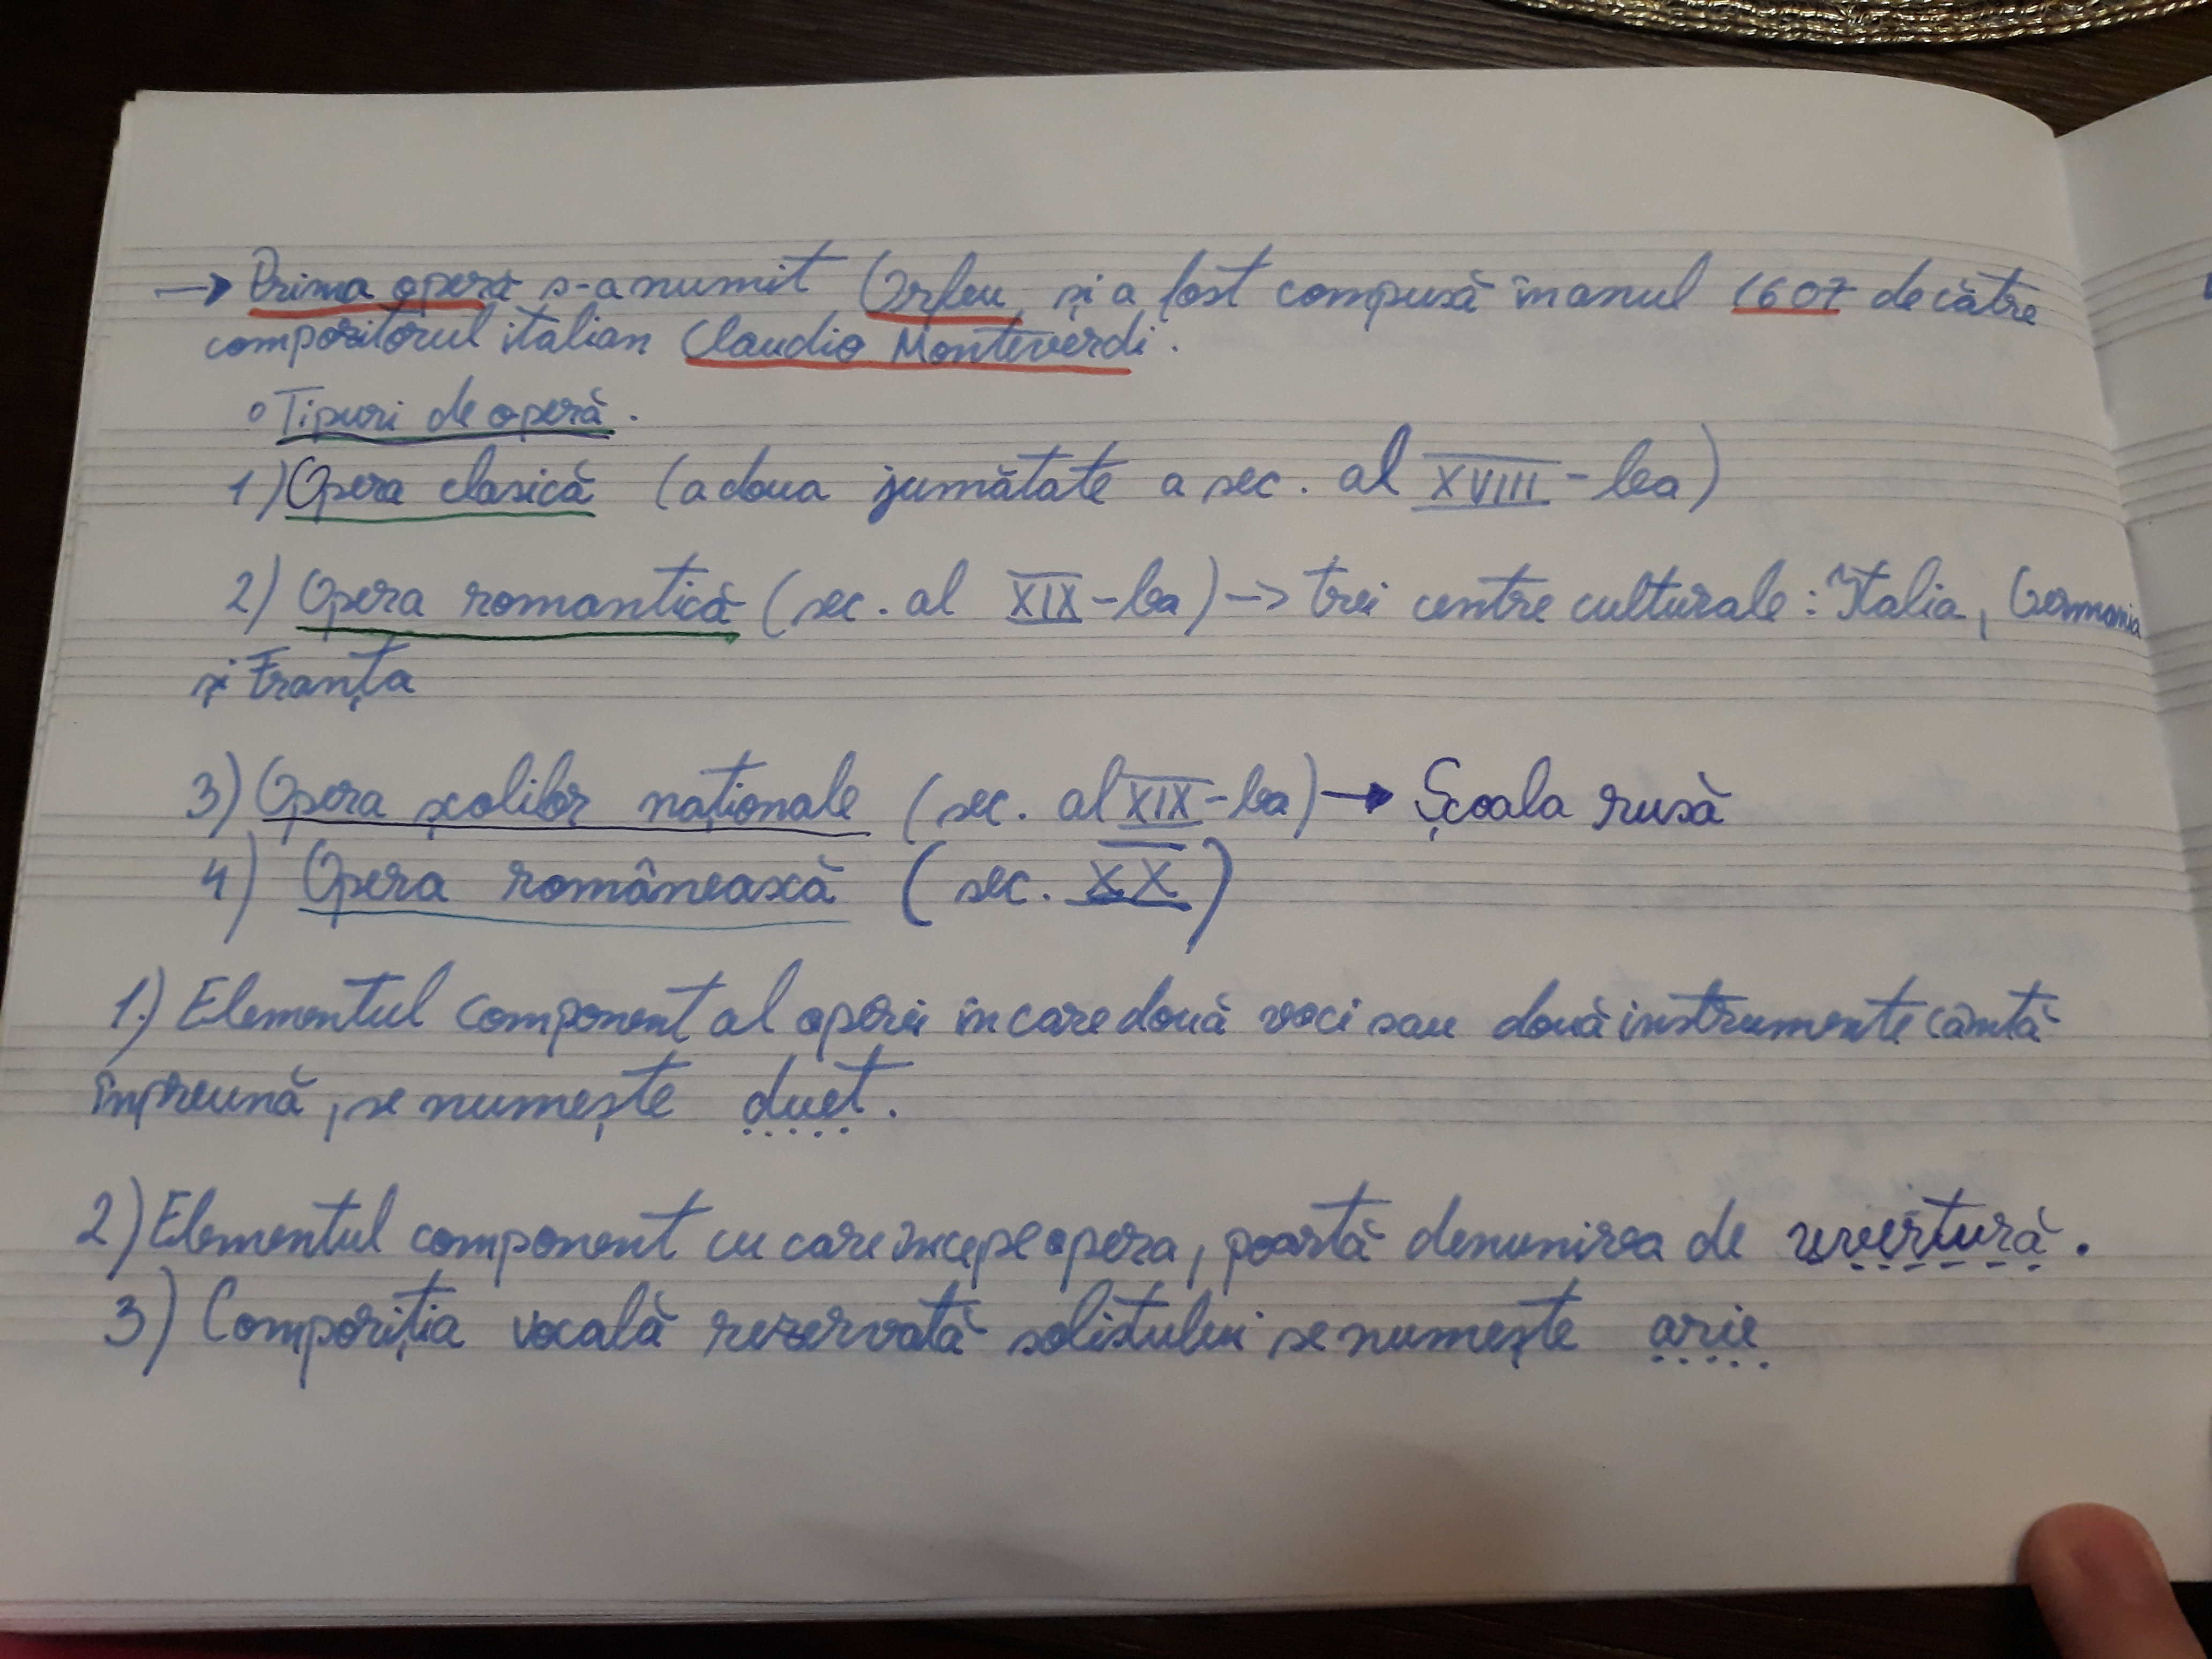 → Prima operă s-a numit Orfeu, și a fost compusă în anul 1607 de către
compozitorul italian Claudio Monteverdi.
° Tipuri de operă.
1) Opera clasică (a doua jumătate a sec. al XVIII-lea)
2) Opera romantică (sec. al XIX-lea) -> trei centre culturale: Italia, Germania
și Franța
3) Opera școlilor naționale (sec. al XIX-lea) → Școala rusă
4) Opera românească (sec. XX)
1.) Elementul component al operei în care două voci sau două instrumente cântă
împreună, se numește duet.
2) Elementul component cu care începe opera, poartă denumirea de uvertură.
3) Compoziția vocală rezervată solistului se numește arie